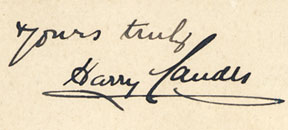 Yours truly
Harry Lauder